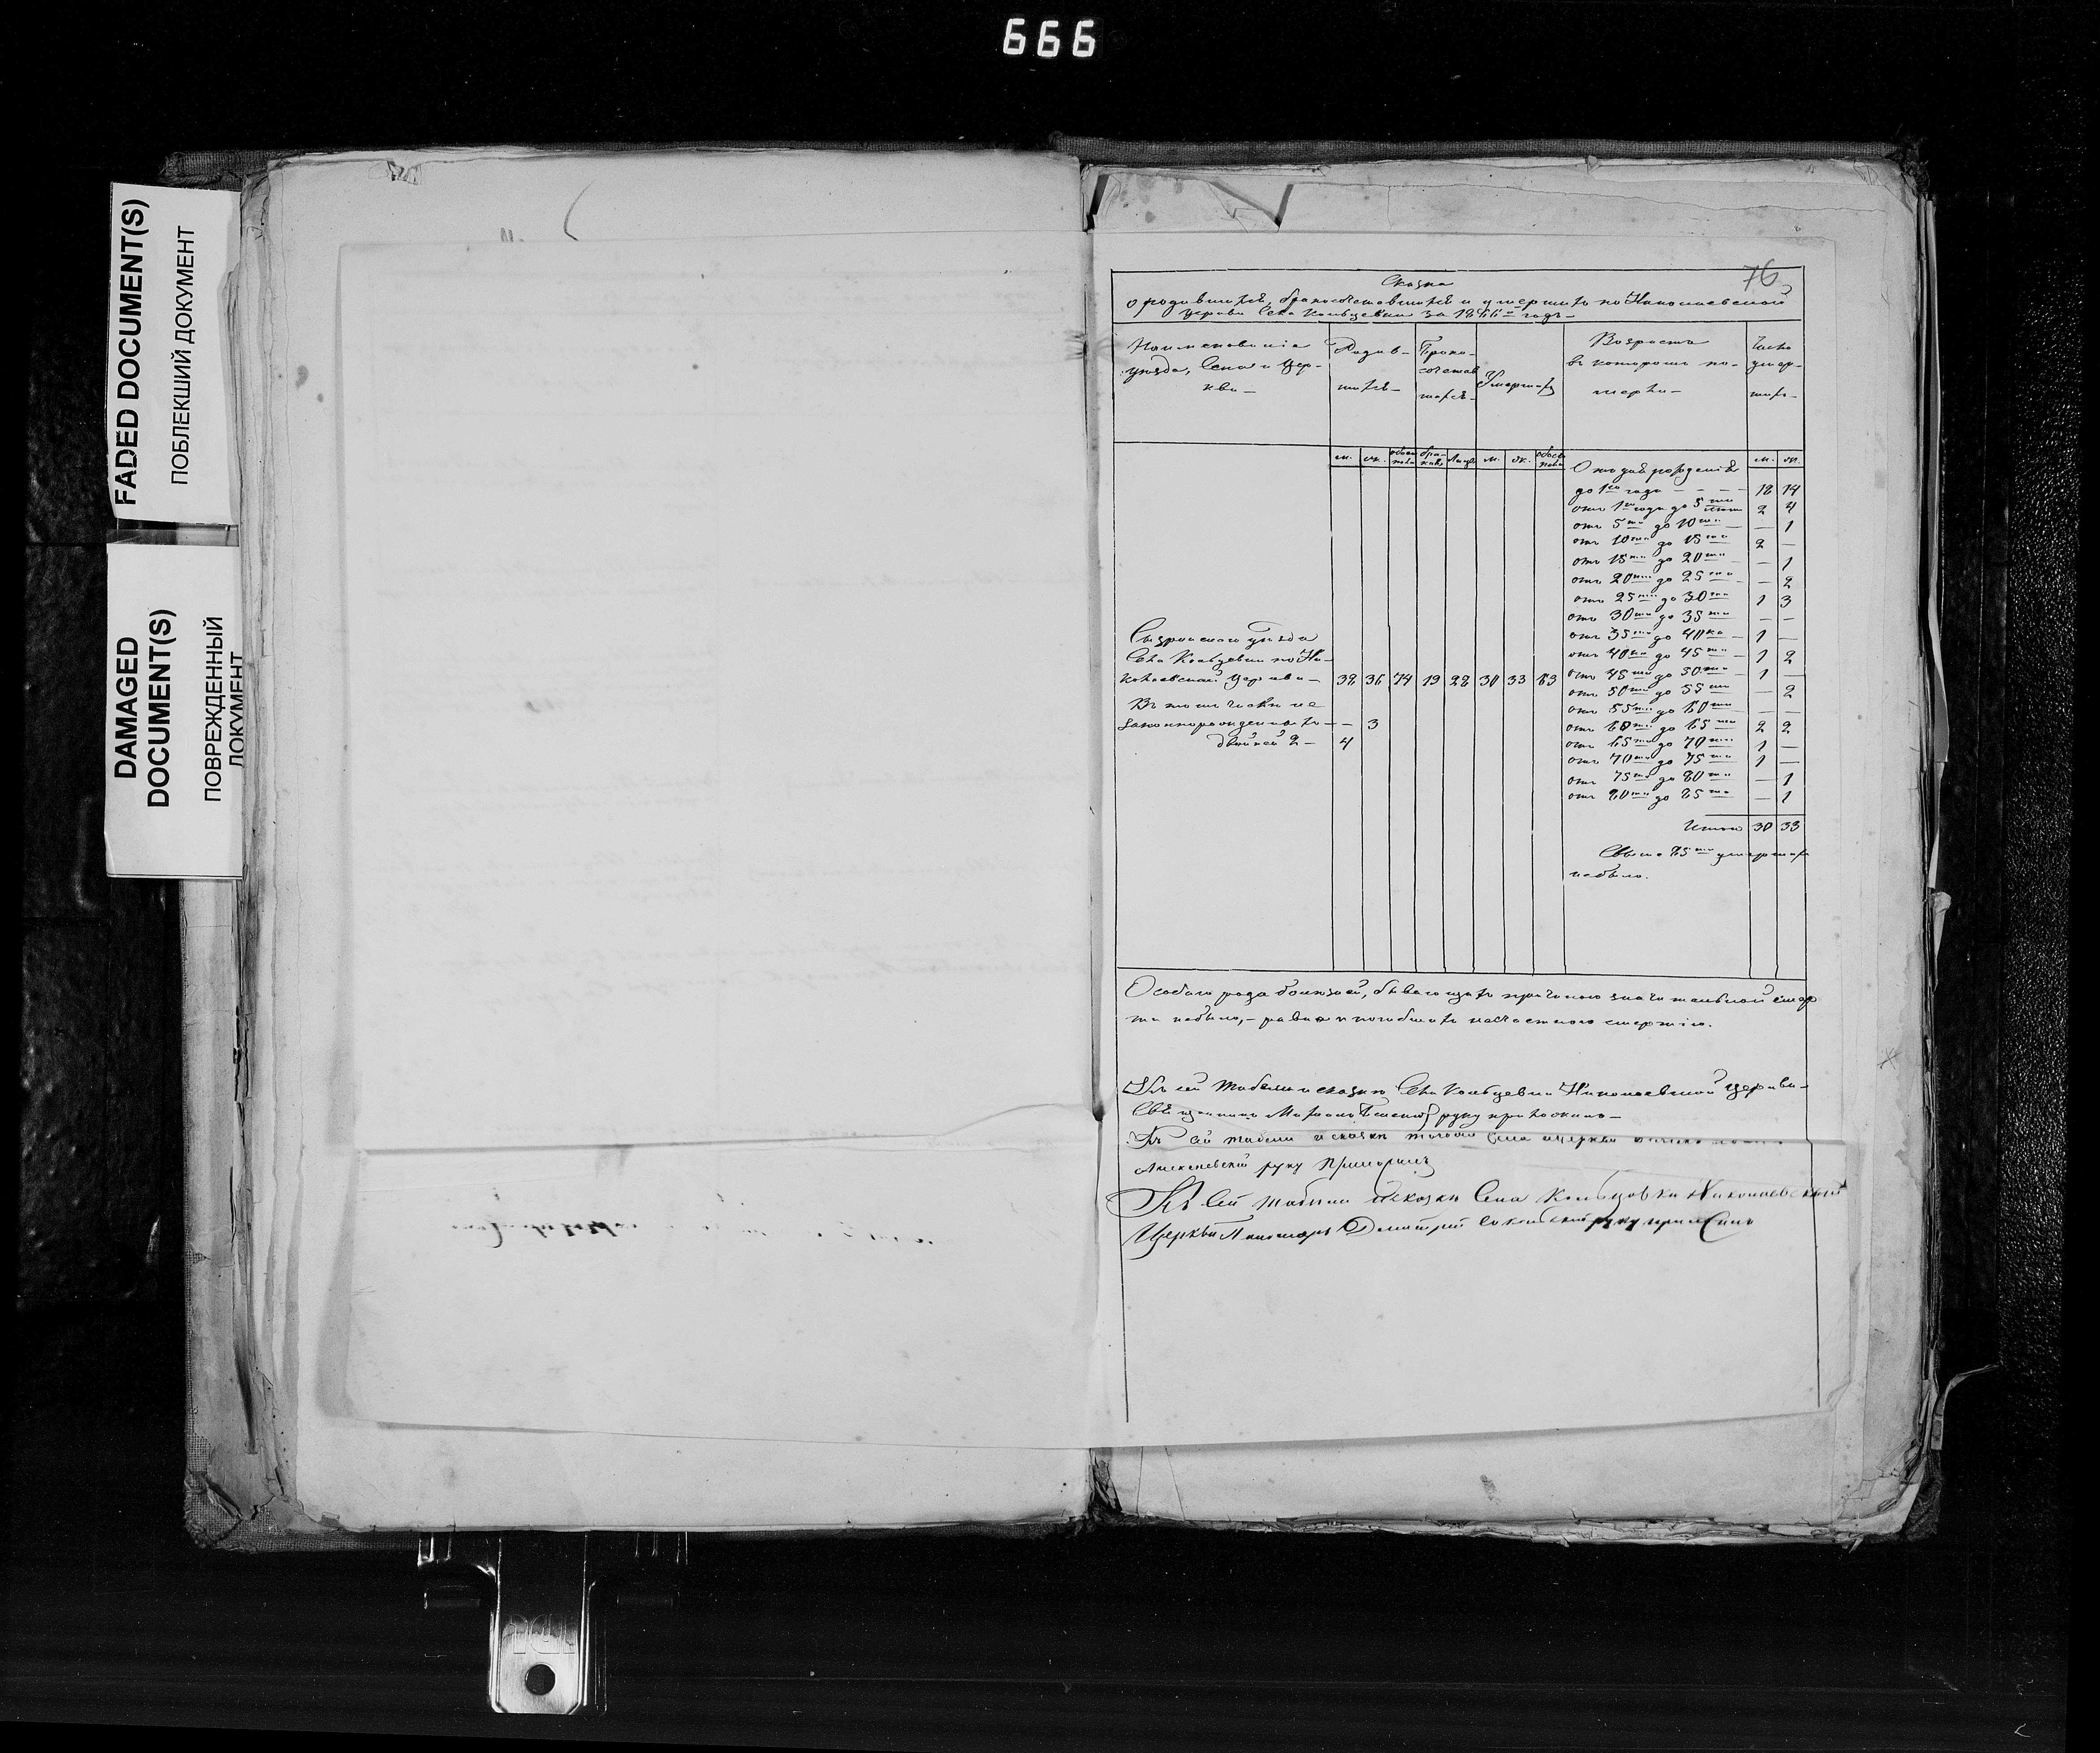 666
FADED DOCUMENT(S)
ПОБЛЕКШИЙ ДОКУМЕНТ
DAMAGED
DOCUMENT(S)
ПОВРЕЖДЕННЫЙ
ДОКУМЕНТ
76
Сказка
о родившихся, бракосочетавшихся и умершихъ по Николаевской
церкви Села Кольцевки за 1866й годъ
Наименованіе
уѣзда, Села и Цер-
кви
Родив-
шихся
Брако-
сочетав
шихся
Умершихъ
Возраста
въ которомъ по-
мерли
Число
умер-
шихъ
м. ж. обоего пола бра- ковъ Лицъ м. ж. обоего пола м. ж.
Отъ дня рожденія
до 1го года 18 14
отъ 1го года до 5ти лѣтъ 2 4
отъ 5ти до 10ти — 1
отъ 10ти до 15ти 2 —
отъ 15ти до 20ти — 1
отъ 20ти до 25ти — 2
отъ 25ти до 30ти 1 3
отъ 30ти до 35ти — —
отъ 35ти до 40ка 1 —
отъ 40ка до 45ти 1 2
отъ 45ти до 50ти 1 —
отъ 50ти до 55ти — 2
отъ 55ти до 60ти — —
отъ 60ти до 65ти 2 2
отъ 65ти до 70ти 1 —
отъ 70ти до 75ти 1 —
отъ 75ти до 80ти — 1
отъ 80ти до 85ти — 1
Итого 30 33
Свыше 85ти умершихъ
небыло.
Сызранскаго уѣзда
Села Кольцевки по Ни-
колаевской Церкви 38 36 74 19 28 30 33 63
Въ томъ числѣ не
законнорожденныхъ — 3
двойней 2 — 4
Особаго рода болѣзней, бывающихъ причиною значительной смер
ти небыло, — равно и погибшихъ несчастною смертію.
Къ сей табели и сказкѣ Села Кольцевки Николаевской Церкви
Священникъ руку приложилъ
Къ сей табели и сказки тогожъ Села Церкви
руку приложилъ
Къ Сей табели и Сказки Села Кольцовки Николаевской
Церкви Пономарь Дмитрій руку приложилъ